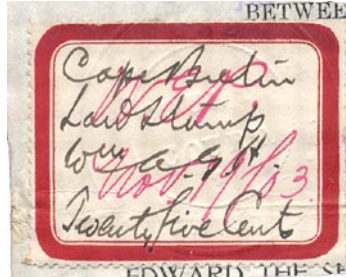 BETWEE
Cape Breton
Law Stamp
Wm A. G. H.
Nov. 19/03.
Twenty five Cents
EDWARD THE SE